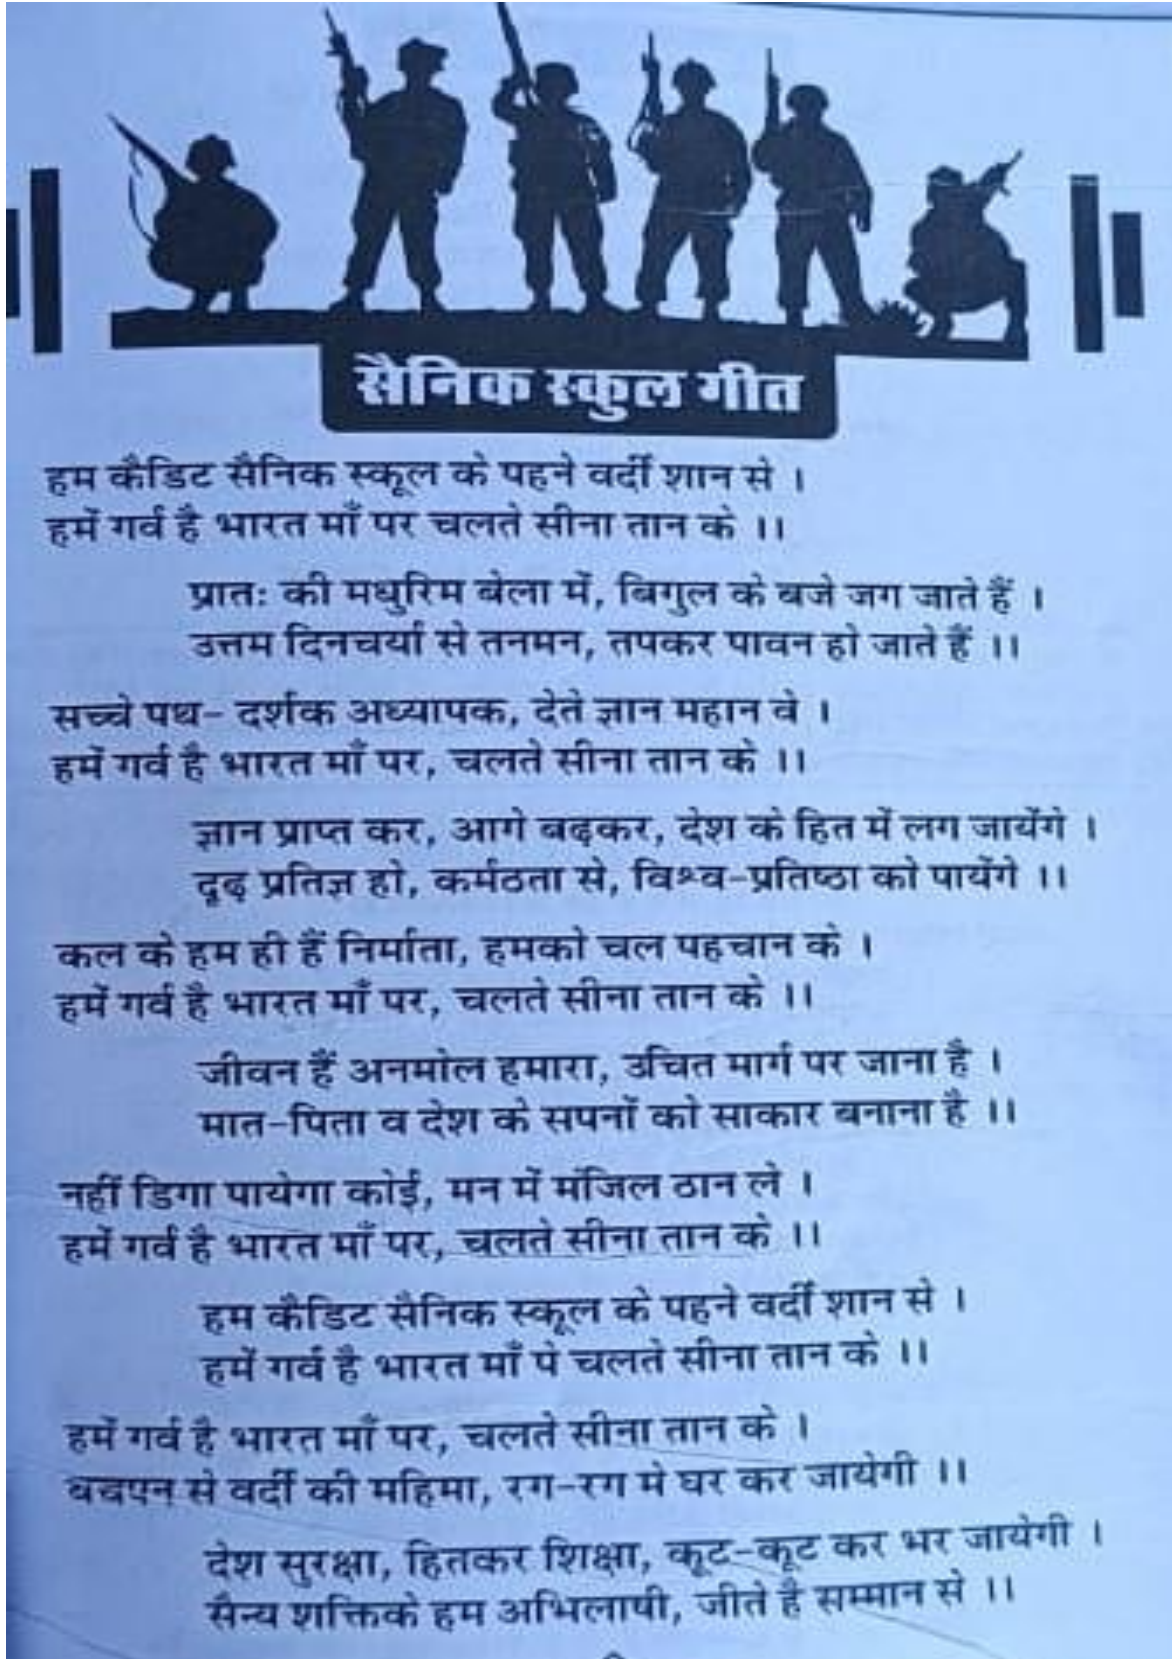 सैनिक स्कुल गीत
हम कैडिट सैनिक स्कूल के पहने वर्दी शान से ।
हमें गर्व है भारत माँ पर चलते सीना तान के ।।
प्रातः की मधुरिम बेला में, बिगुल के बजे जग जाते हैं ।
उत्तम दिनचर्या से तनमन, तपकर पावन हो जाते हैं ।।
सच्चे पथ- दर्शक अध्यापक, देते ज्ञान महान वे ।
हमें गर्व है भारत माँ पर, चलते सीना तान के ।।
ज्ञान प्राप्त कर, आगे बढ़कर, देश के हित में लग जायेंगे ।
दृढ़ प्रतिज्ञ हो, कर्मठता से, विश्व-प्रतिष्ठा को पायेंगे ।।
कल के हम ही हैं निर्माता, हमको चल पहचान के ।
हमें गर्व है भारत माँ पर, चलते सीना तान के ।।
जीवन हैं अनमोल हमारा, उचित मार्ग पर जाना है ।
मात-पिता व देश के सपनों को साकार बनाना है ।।
नहीं डिगा पायेगा कोई, मन में मंजिल ठान ले ।
हमें गर्व है भारत माँ पर, चलते सीना तान के ।।
हम कैडिट सैनिक स्कूल के पहने वर्दी शान से ।
हमें गर्व है भारत माँ पे चलते सीना तान के ।।
हमें गर्व है भारत माँ पर, चलते सीना तान के ।
बचपन से वर्दी की महिमा, रग-रग मे घर कर जायेगी ।।
देश सुरक्षा, हितकर शिक्षा, कूट-कूट कर भर जायेगी ।
सैन्य शक्तिके हम अभिलाषी, जीते है सम्मान से ।।